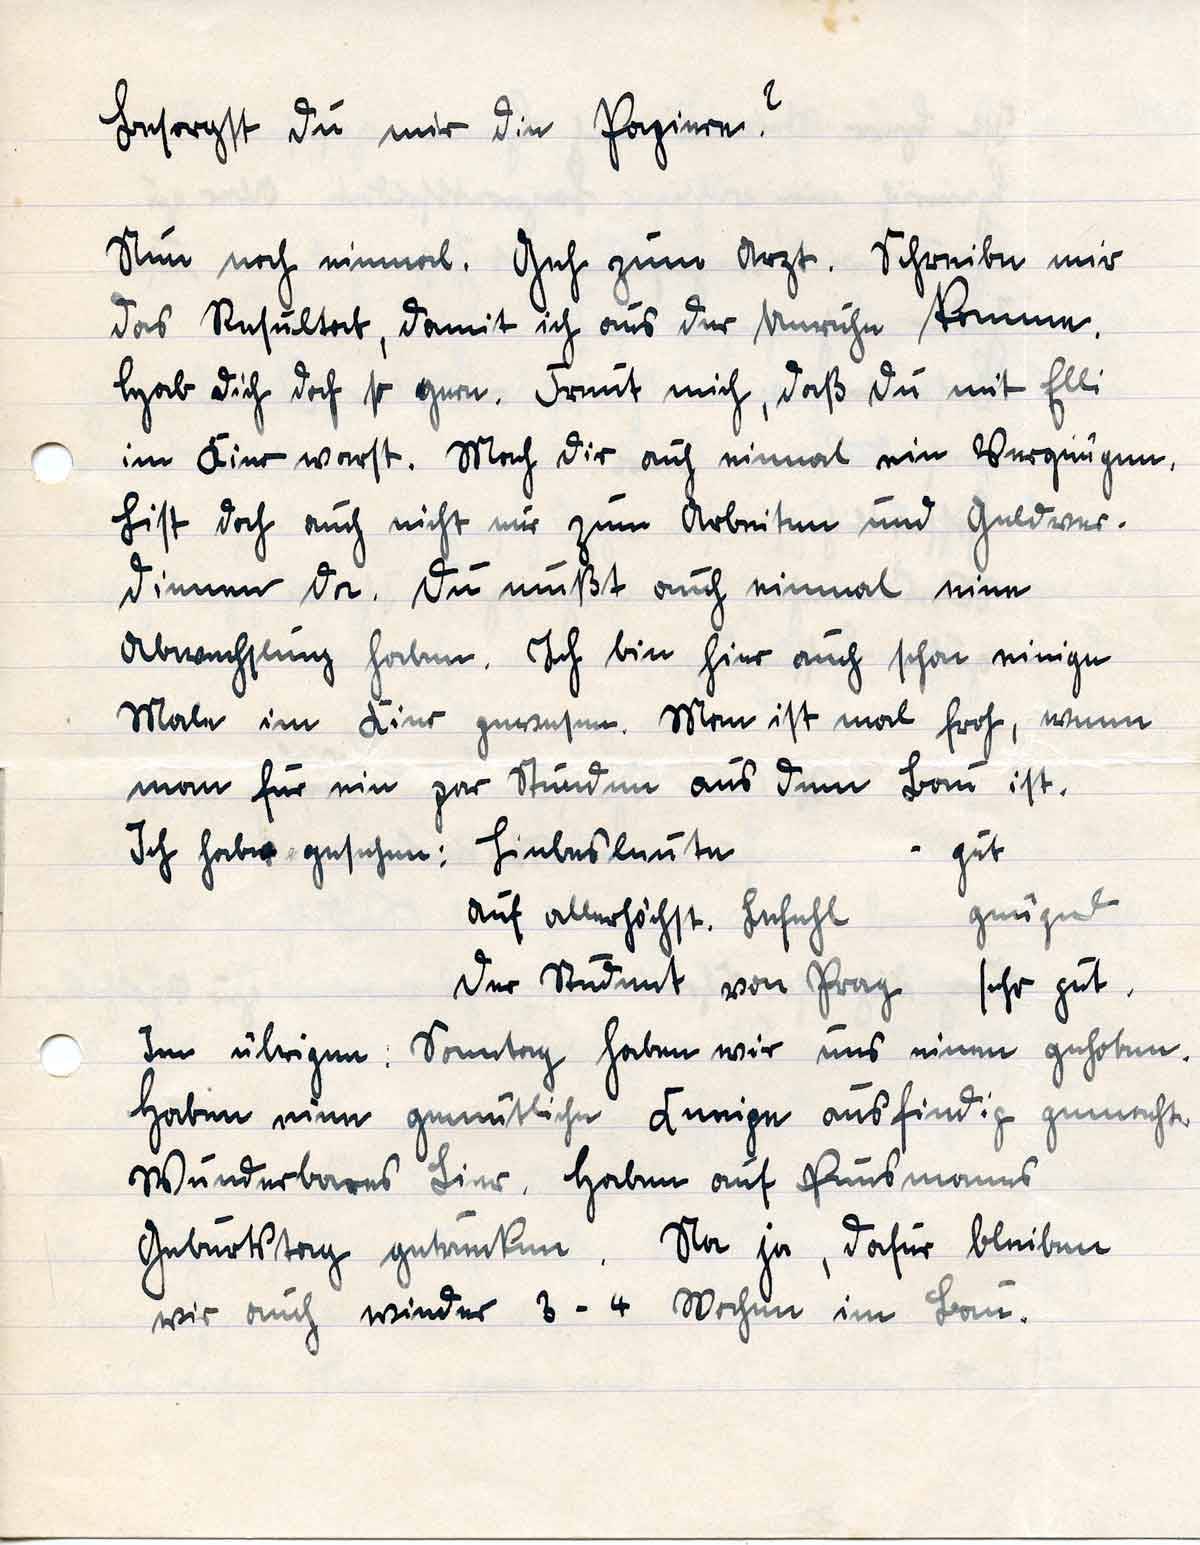 Besorgst Du mir die Papiere?
Nun noch einmal. Geh zum Arzt. Schreibe mir
das Resultat, damit ich aus der Unruhe komme.
Hab Dich doch so gern. Freut mich, daß Du mit Elli
im Kino warst. Mach Dir auch einmal ein Vergnügen.
Bist doch auch nicht nur zum Arbeiten und Geldver-
dienen da. Du mußt auch einmal eine
Abwechslung haben. Ich bin hier auch schon einige
Male im Kino gewesen. Man ist mal froh, wenn
man für ein par Stunden aus dem Bau ist.
Ich habe gesehen: Liebesleute - gut
auf allerhöchst. Befehl genügend
Der Student von Prag sehr gut.
Im übrigen: Sonntag haben wir uns einen gehoben.
Haben eine gemütliche Kneipe ausfindig gemacht.
Wunderbares Bier. Haben auf
Geburtstag getrunken. Na ja, dafür bleiben
wir auch wieder 3 - 4 Wochen im Bau.